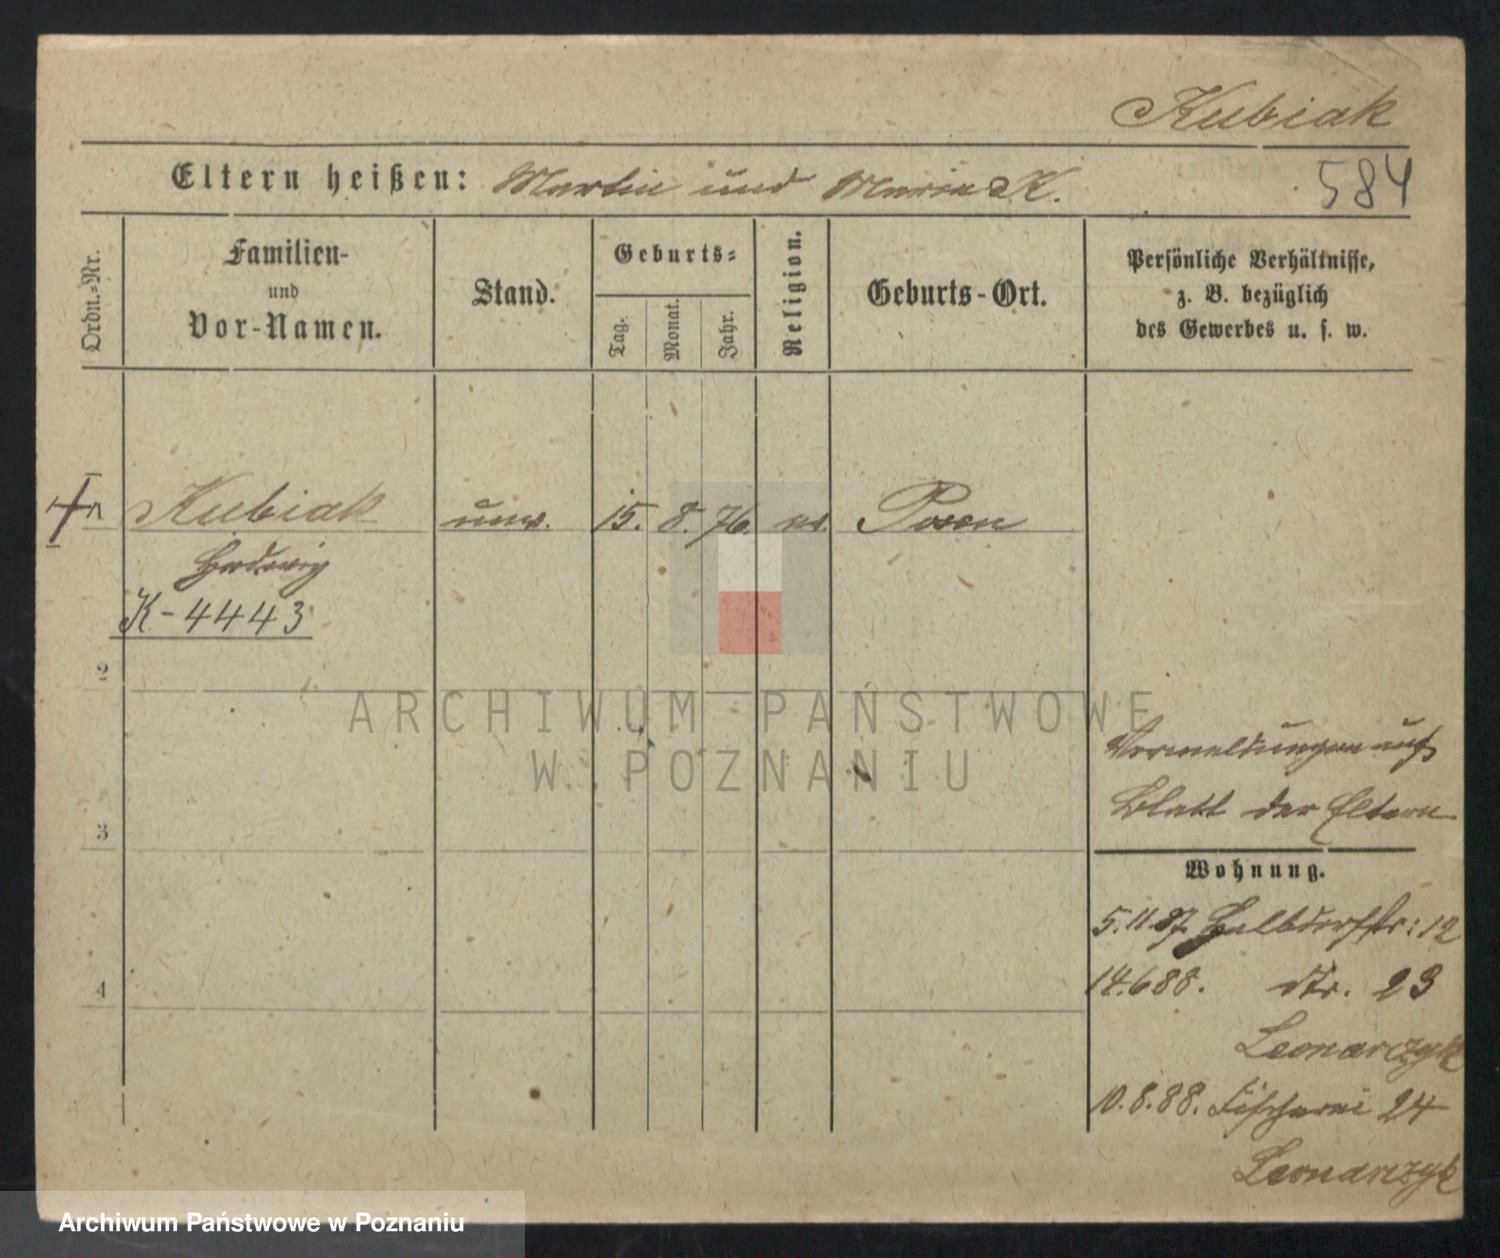 Kubiak
Eltern heißen: Martin und Maria K.
584
Ordn.-Nr.
Familien-
und
Vor-Namen.
Stand.
Geburts-
Tag.
Monat.
Jahr.
Religion.
Geburts-Ort.
Persönliche Verhältnisse,
z. B. bezüglich
des Gewerbes u. s. w.
Kubiak unv. 15. 8. 76. Posen
Hedwig
K-4443
2
ARCHIWUM PAŃSTWOWE
W POZNANIU
auf
Blatt der Eltern
3
Wohnung.
5.11.87. Halbdorfstr: 12
4
14.6.88. dto. 23
Leonarczyk
10.8.88. Fischerei 24
Leonarczyk
Archiwum Państwowe w Poznaniu